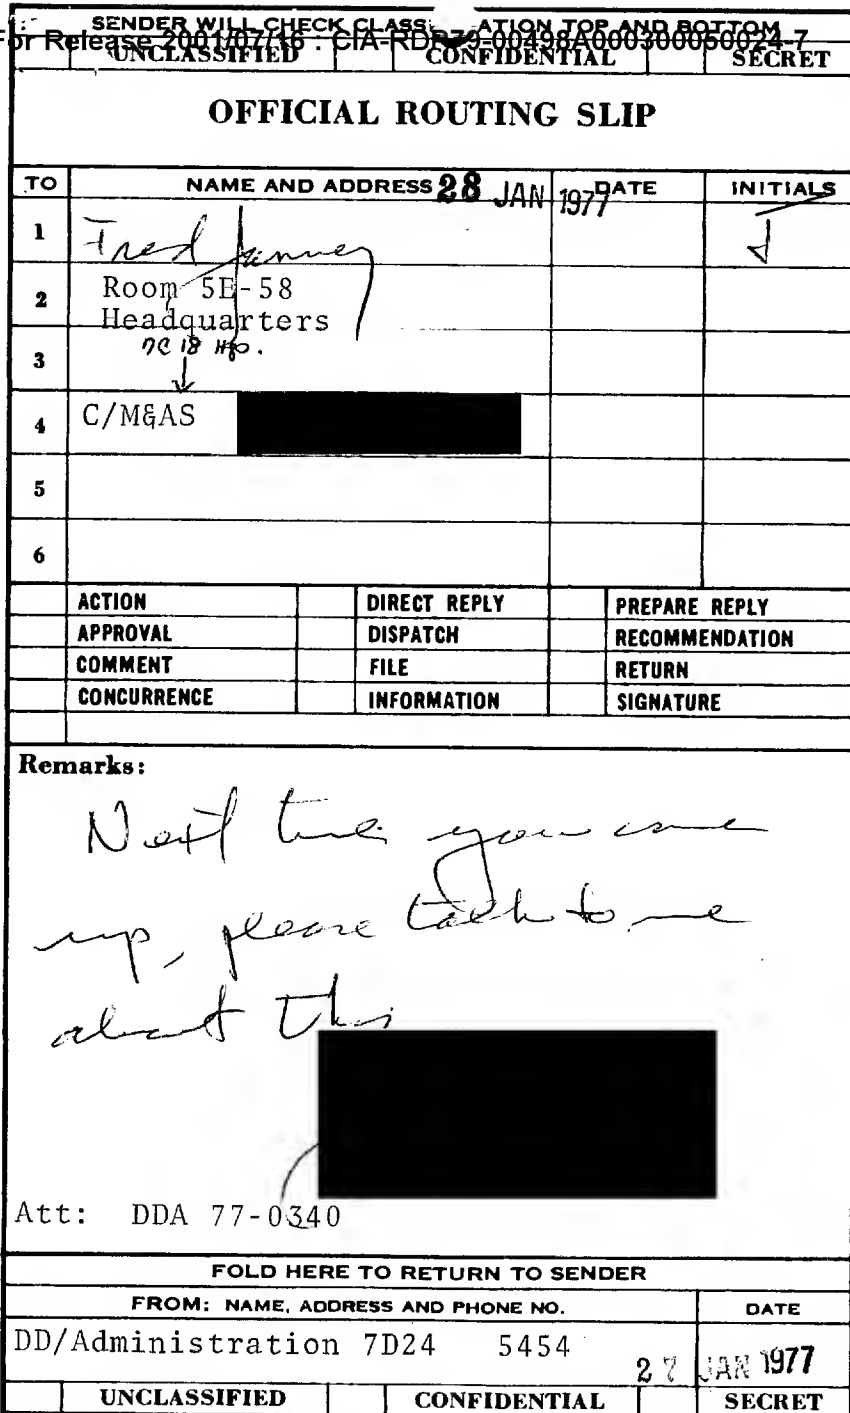 SENDER WILL CHECK CLASS ATION TOP AND BOTTOM
or Release 2001/07/16 : CIA-RDP79-00498A000300060024-7
UNCLASSIFIED CONFIDENTIAL SECRET
OFFICIAL ROUTING SLIP
TO NAME AND ADDRESS DATE INITIALS
28 JAN 1977
1 Fred Janney J
2 Room 5E-58
Headquarters
7C 18 Hqs.
3
4 C/M&AS
5
6
ACTION DIRECT REPLY PREPARE REPLY
APPROVAL DISPATCH RECOMMENDATION
COMMENT FILE RETURN
CONCURRENCE INFORMATION SIGNATURE
Remarks:
Next time you come
up, please talk to me
about this
Att: DDA 77-0340
FOLD HERE TO RETURN TO SENDER
FROM: NAME, ADDRESS AND PHONE NO. DATE
DD/Administration 7D24 5454 27 JAN 1977
UNCLASSIFIED CONFIDENTIAL SECRET